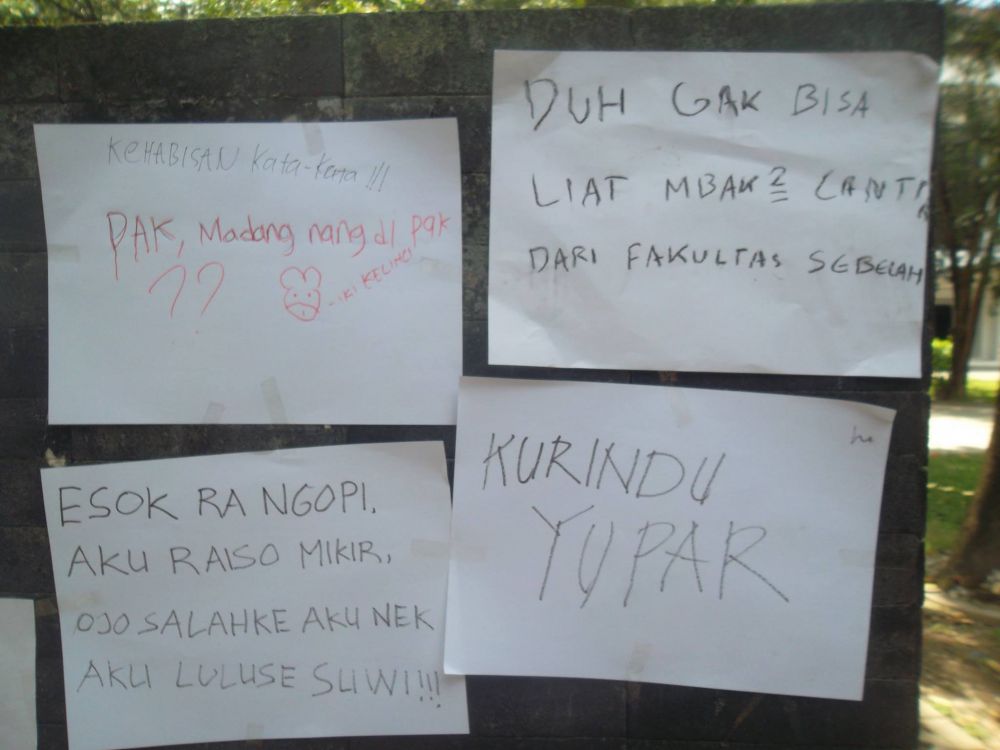 KEHABISAN Kata-Kata !!!
PAK, Madang nang di pak
??
- IKI KELINCI
DUH GAK BISA
LIAT MBAK2 CANTIK
DARI FAKULTAS SEBELAH
ESOK RA NGOPI.
AKU RAISO MIKIR.
OJO SALAHKE AKU NEK
AKU LULUSE SUWI!!!
KURINDU
YUPAR